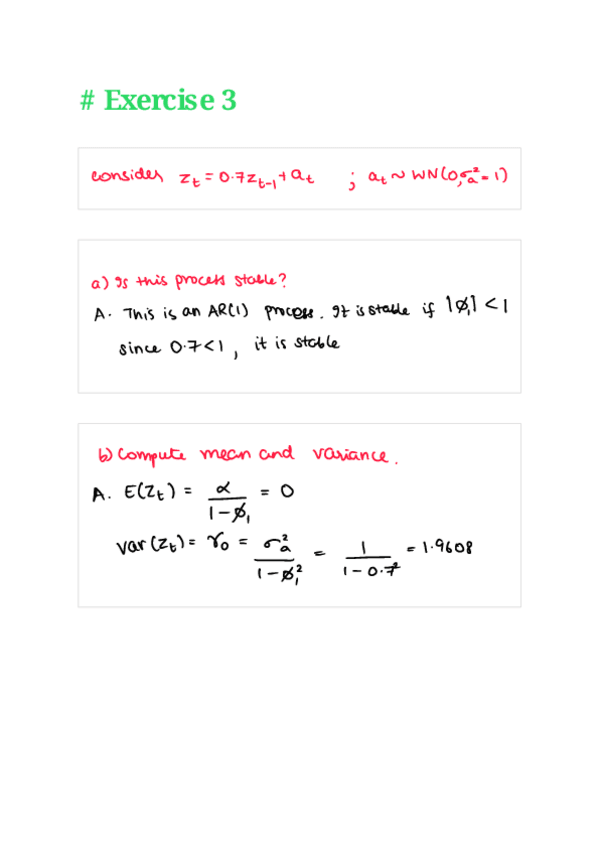 # Exercise 3
consider z_t = 0.7z_{t-1} + a_t ; a_t ~ WN(0, σ_a^2 = 1)
a) Is this process stable?
A. This is an AR(1) process. It is stable if |ø_1| < 1
since 0.7 < 1, it is stable
b) Compute mean and variance.
A. E(Z_t) = α / (1 - ø_1) = 0
Var(Z_t) = γ_0 = σ_a^2 / (1 - ø_1^2) = 1 / (1 - 0.7^2) = 1.9608